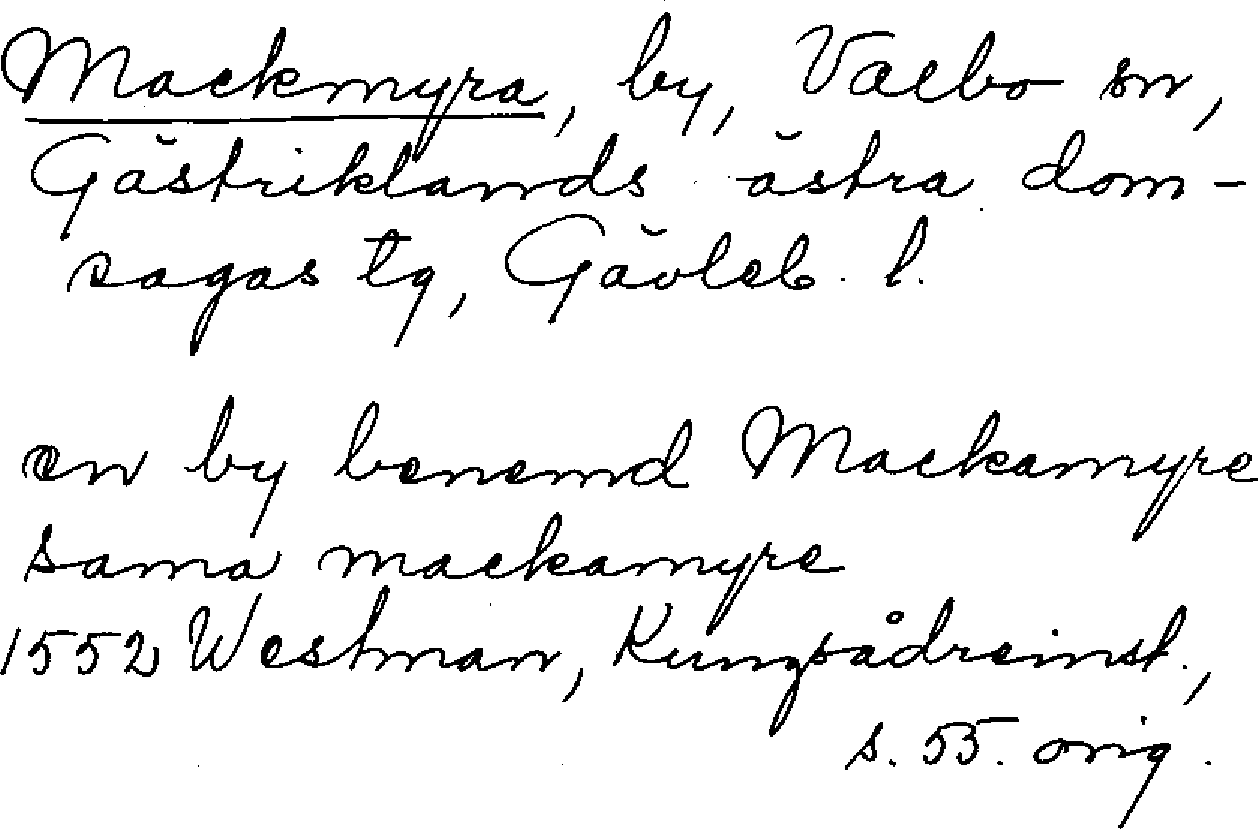 Mackmyra, by, Valbo sn,
Gästriklands östra dom-
sagas tg, Gävleb. l.
en by benemd Mackamyre
sama mackamyre
1552 Westman, Kungsådreinst.,
s. 55. orig.